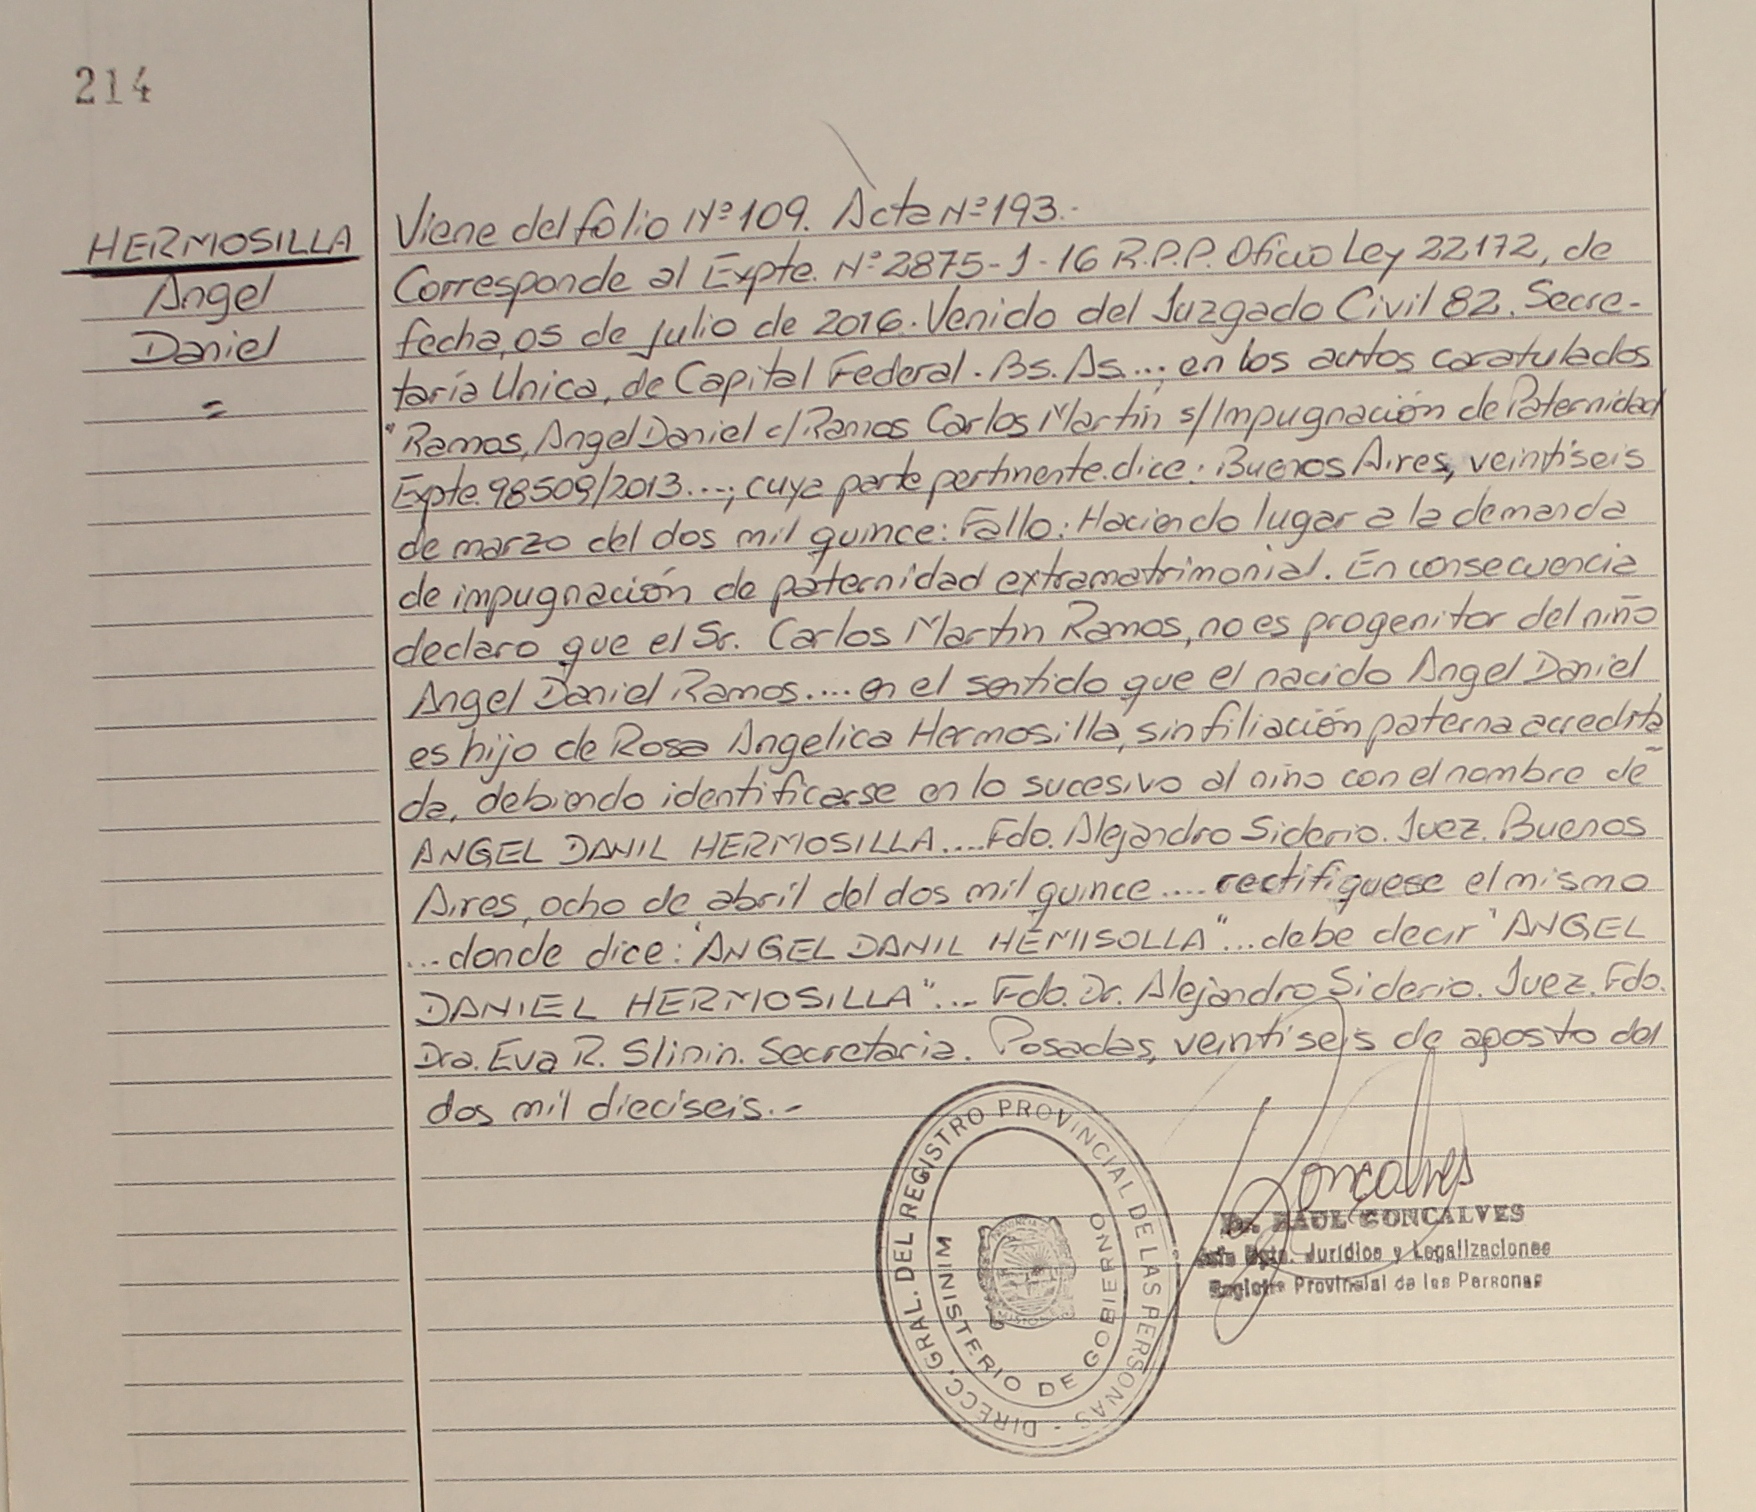 214
HERMOSILLA
Angel
Daniel
=
Viene del folio Nº 109. Acta Nº 193.-
Corresponde al Expte. Nº 2875-J-16 R.P.P. Oficio Ley 22.172, de
fecha, 05 de julio de 2016. Venido del Juzgado Civil 82. Secre-
taría Unica, de Capital Federal. Bs. As...; en los autos caratulados
"Ramos, Angel Daniel c/ Ramos Carlos Martin s/ Impugnación de Paternidad
Expte. 98509/2013...; cuya parte pertinente dice: Buenos Aires, veintiseis
de marzo del dos mil quince: Fallo: Haciendo lugar a la demanda
de impugnación de paternidad extramatrimonial. En consecuencia
declaro que el Sr. Carlos Martin Ramos, no es progenitor del niño
Angel Daniel Ramos.... en el sentido que el nacido Angel Daniel
es hijo de Rosa Angelica Hermosilla, sin filiación paterna acredita
da, debiendo identificarse en lo sucesivo al niño con el nombre de
ANGEL DANIL HERMOSILLA.... Fdo. Alejandro Siderio. Juez. Buenos
Aires, ocho de abril del dos mil quince.... rectifiquese el mismo
...donde dice: "ANGEL DANIL HEMISOLLA"... debe decir "ANGEL
DANIEL HERMOSILLA"... Fdo. Dr. Alejandro Siderio. Juez. Fdo.
Dra. Eva R. Slinin. Secretaria. Posadas, veintiseis de agosto del
dos mil dieciseis.-
DIRECC. GRAL. DEL REGISTRO PROVINCIAL DE LAS PERSONAS -
MINISTERIO DE GOBIERNO
Goncalves
Dr. RAUL GONCALVES
Dpto. Jurídico y Legalizaciones
Registro Provincial de las Personas